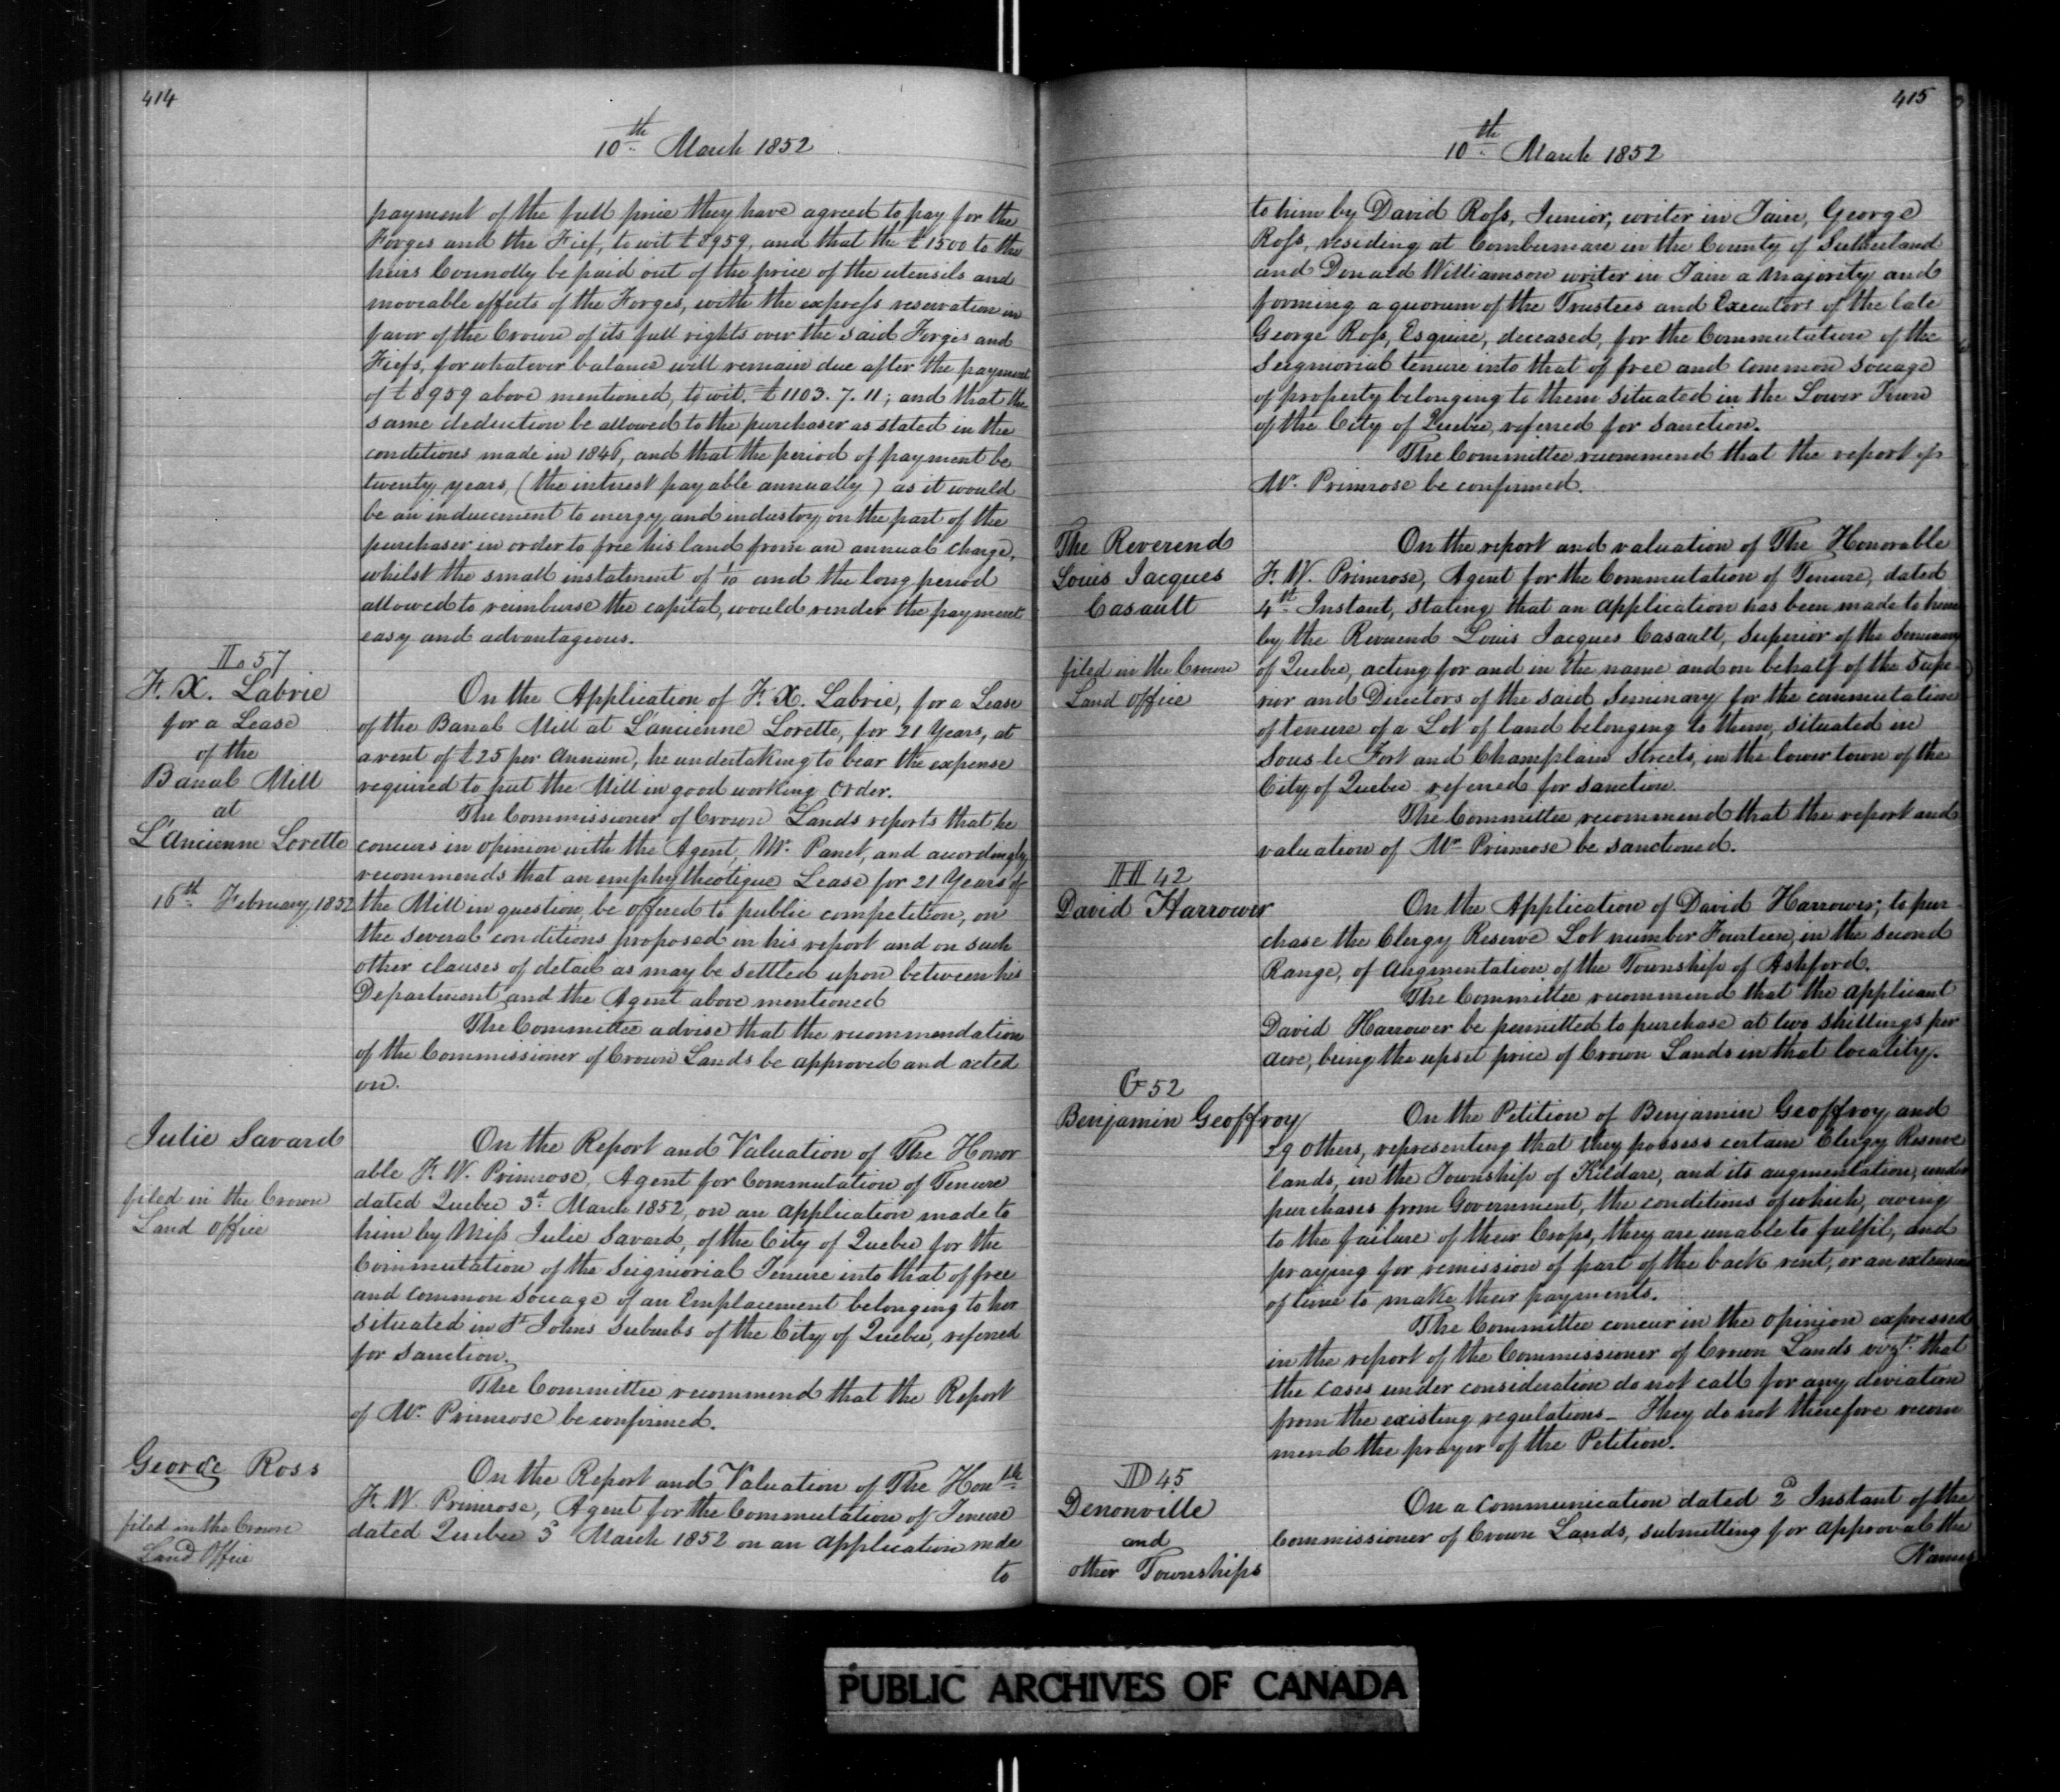 414
10th March 1852
payment of the full price they have agreed to pay for the
Forges and the Fief, to wit £8959, and that the £1500 to the
heirs Connolly be paid out of the price of the utensils and
moveable effects of the Forges, with the express reservation in
favor of the Crown of its full rights over the said Forges and
Fiefs, for whatever balance will remain due after the payment
of £8959 above mentioned, to wit. £1103. 7. 11; and that the
same deduction be allowed to the purchaser as stated in the
conditions made in 1846, and that the period of payment be
twenty years, (the interest payable annually) as it would
be an inducement to energy and industry on the part of the
purchaser in order to free his land from an annual charge,
whilst the small instalment of 1/10 and the long period
allowed to reimburse the capital, would render the payment
easy and advantageous.
57
F. X. Labrie
for a Lease
of the
Banal Mill
at
L'Ancienne Lorette
16th February, 1852
On the Application of F. X. Labrie, for a Lease
of the Banal Mill at L'ancienne Lorette, for 21 Years, at
a rent of £25 per Annum, he undertaking to bear the expense
required to put the Mill in good working Order.
The Commissioner of Crown Lands reports that he
concurs in opinion with the Agent, Mr. Panet, and accordingly
recommends that an emphytheotique Lease for 21 Years of
the Mill in question, be offered to public competition, on
the several conditions proposed in his report and on such
other clauses of detail as may be settled upon between his
Department and the Agent above mentioned
The Committee advise that the recommendation
of the Commissioner of Crown Lands be approved and acted
on.
Julie Savard
filed in the Crown
Land Office
On the Report and Valuation of The Honor
able F. W. Primrose, Agent for Commutation of Tenure
dated Quebec 3d March 1852, on an application made to
him by Miss Julie Savard, of the City of Quebec for the
Commutation of the Seigniorial Tenure into that of free
and common Soccage of an Emplacement belonging to her
situated in St Johns Suburbs of the City of Quebec, referred
for Sanction.
The Committee recommend that the Report
of Mr. Primrose be confirmed.
George Ross
filed in the Crown
Land Office
On the Report and Valuation of The Honble
F. W. Primrose, Agent for the Commutation of Tenure
dated Quebec 3d March 1852 on an application made
to
415
10th March 1852
to him by David Ross, Junior, writer in Tain, George
Ross, residing at Combermare in the County of Sutherland
and Donald Williamson writer in Tain a majority and
forming a quorum of the Trustees and Executors of the late
George Ross, Esquire, deceased, for the Commutation of the
Seigniorial tenure into that of free and common soccage
of property belonging to them situated in the Lower Town
of the City of Quebec, referred for sanction.
The Committee recommend that the report of
Mr. Primrose be confirmed.
The Reverend
Louis Jacques
Casault
filed in the Crown
Land Office
On the report and valuation of The Honorable
F. W. Primrose, Agent for the Commutation of Tenure, dated
4th Instant, stating that an application has been made to him
by the Reverend Louis Jacques Casault, Superior of the Seminary
of Quebec, acting for and in the name and on behalf of the Supe-
rior and Directors of the said Seminary for the commutation
of tenure of a Lot of land belonging to them, situated in
Sous le Fort and Champlain Streets, in the lower town of the
City of Quebec referred for sanction.
The Committee recommend that the report and
valuation of Mr Primrose be sanctioned.
42
David Harrower
On the Application of David Harrower, to pur-
chase the Clergy Reserve Lot number Fourteen, in the second
Range, of Augmentation of the Township of Ashford.
The Committee recommend that the applicant
David Harrower be permitted to purchase at two shillings per
Acre, being the upset price of Crown Lands in that locality.
G 52
Benjamin Geoffroy
On the Petition of Benjamin Geoffroy and
29 others, representing that they possess certain Clergy Reserve
lands, in the Township of Kildare, and its augmentation, under
purchases from Government, the conditions of which, owing
to the failure of their Crops, they are unable to fulfil, and
praying for remission of part of the back rent, or an extension
of time to make their payments.
The Committee concur in the opinion expressed
in the report of the Commissioner of Crown Lands vizt. that
the cases under consideration do not call for any deviation
from the existing regulations_ They do not therefore recom
mend the prayer of the Petition.
D 45
Denonville
and
other Townships
On a Communication dated 2d Instant of the
Commissioner of Crown Lands, submitting for approval the
Names
PUBLIC ARCHIVES OF CANADA